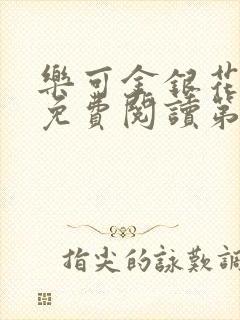 樂可金銀花
免費閱讀第
指尖的詠歎調